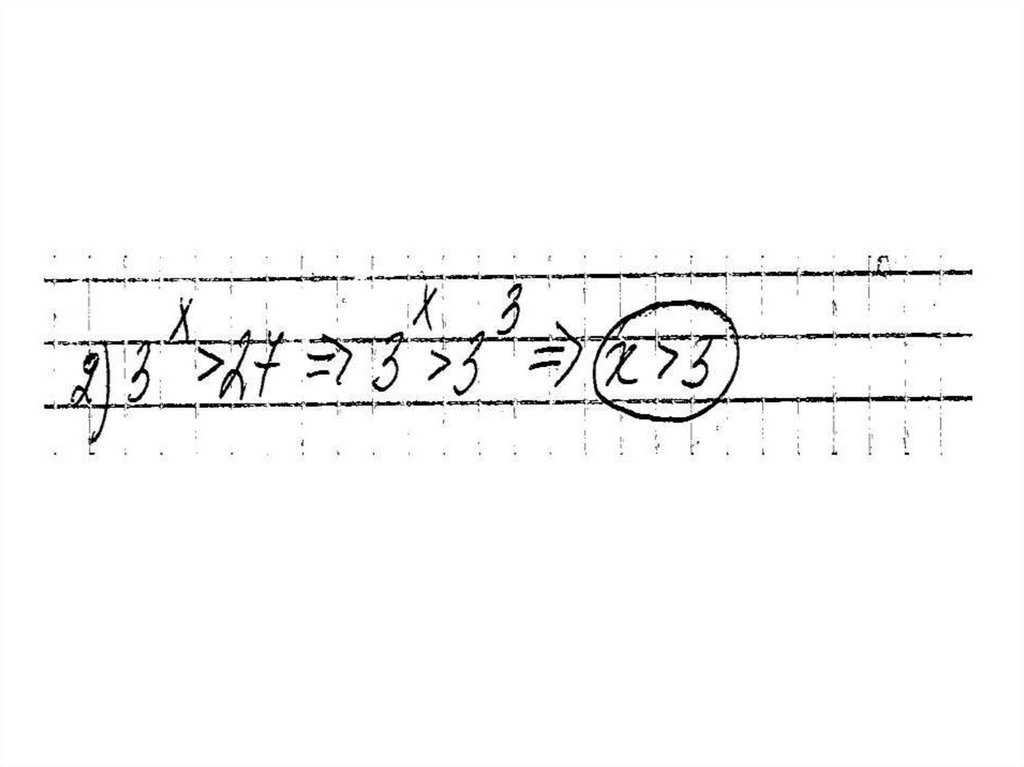 2) 3ˣ > 27 => 3ˣ > 3³ => x > 3